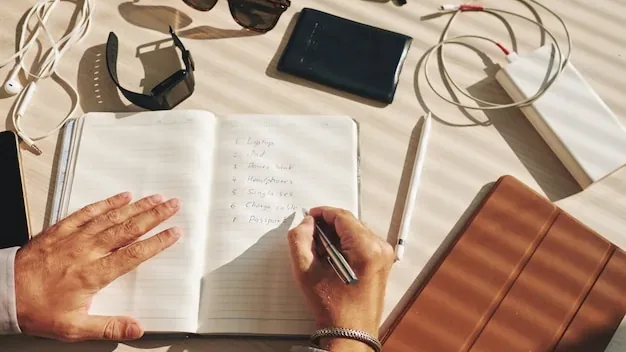 1. Laptop
2. iPad
3. Power bank
4. Headphones
5. Single
6. Charge cable
7. Passport